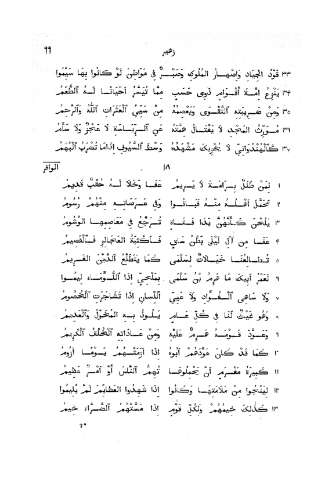 ٩٩ زهير
٣٣ قَوْدُ الجِيَادِ وَإِصْهَارُ المُلُوكِ وَصَبْرٌ فِي مَوَاطِنَ لَوْ كَانُوا بِهَا سَئِمُوا
٣٤ يَنْزِعُ إِمَّةَ أَقْوَامٍ ذَوِي حَسَبٍ مِمَّا تُيَسَّرُ أَحْيَانًا لَهُ الطُّعَمُ
٣٥ وَمِنْ ضَرِيبَتِهِ التَّقْوَى وَيَعْصِمُهُ مِنْ سَيِّئِ العَثَرَاتِ اللّٰهُ وَالرَّحِمُ
٣٦ مُوَرَّثُ المَجْدِ لَا يَغْتَالُ هِمَّتَهُ عَنِ الرِّيَاسَةِ لَا عَجْزٌ وَلَا سَأَمُ
٣٧ كَالهِنْدُوَانِيِّ لَا يُخْزِيكَ مَشْهَدُهُ وَسْطَ السُّيُوفِ إِذَا مَا تُضْرَبُ البُهَمُ
١٨ الوافر
١ لِمَنْ طَلَلٌ بِرَامَةَ لَا يَرِيمُ عَفَا وَخَلَا لَهُ حُقُبٌ قَدِيمُ
٢ تَحَمَّلَ أَهْلُهُ مِنْهُ فَبَانُوا وَفِي عَرَصَاتِهِ مِنْهُمْ رُسُومُ
٣ يَلُحْنَ كَأَنَّهُنَّ يَدَا فَتَاةٍ تُرَجَّعُ فِي مَعَاصِمِهَا الوُشُومُ
٤ عَفَا مِنْ آلِ لَيْلَى بَطْنُ سَاقٍ فَأَكْثِبَةُ العَجَالِزِ فَالقَصِيمُ
٥ تُطَالِعُنَا خَيَالَاتٌ لِسَلْمَى كَمَا يَتَطَلَّعُ الدَّيْنَ الغَرِيمُ
٦ لَعَمْرُ أَبِيكَ مَا هَرِمُ بْنُ سَلْمَى بِمَلْحِيٍّ إِذَا اللُّؤَمَاءُ لِيمُوا
٧ وَلَا سَاهِي الفُؤَادِ وَلَا عَيِيِّ اللِّسَانِ إِذَا تَشَاجَرَتِ الخُصُومُ
٨ وَهُوَ غَيْثٌ لَنَا فِي كُلِّ عَامٍ يَلُوذُ بِهِ المُخَوَّلُ وَالعَدِيمُ
٩ وَعَوَّدَ قَوْمَهُ هَرِمٌ عَلَيْهِ وَمِنْ عَادَاتِهِ الخُلُقُ الكَرِيمُ
١٠ كَمَا قَدْ كَانَ عَوَّدَهُمْ أَبُوهُ إِذَا أَزَمَتْهُمْ يَوْمًا أَزُومُ
١١ كَبِيرَةُ مَغْرَمٍ أَنْ يَحْمِلُوهَا تُهِمُّ النَّاسَ أَوْ أَمْرٌ عَظِيمُ
١٢ لِيَنْجُوا مِنْ مَلَامَتِهَا وَكَانُوا إِذَا شَهِدُوا العَظَائِمَ لَمْ يُلِيمُوا
١٣ كَذَلِكَ خِيمُهُمْ وَلِكُلِّ قَوْمٍ إِذَا مَسَّتْهُمُ الضَّرَّاءُ خِيمُ